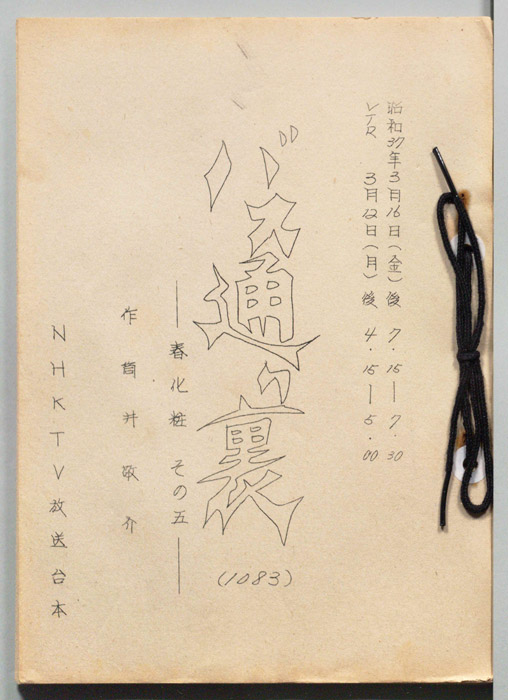 昭和37年3月16日(金)後 7.15—7.30
VTR 3月12日(月)後 4.15—5.00
バス通り裏
—春化粧 その五—
(1083)
作 筒井敬介
NHKTV放送台本